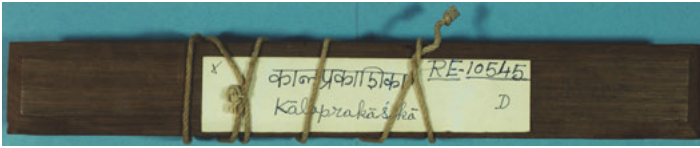 कालप्रकाशिका RE-10545
Kālaprakāśikā D